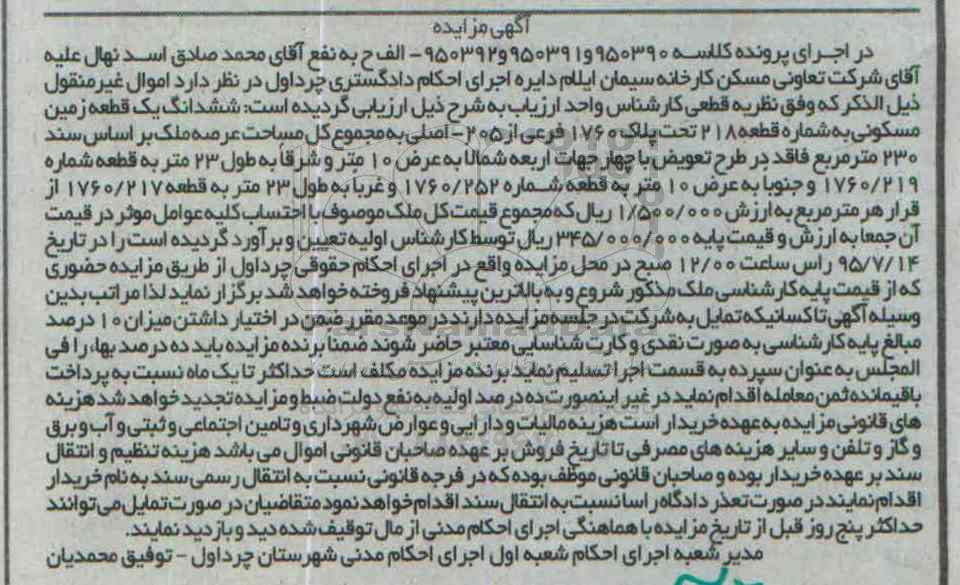 آگهی مزایده
در اجرای پرونده کلاسه ۹۵۰۳۹۰ و۹۵۰۳۹۱ و۹۵۰۳۹۲- الف ح به نفع آقای محمد صادق اسد نهال علیه
آقای شرکت تعاونی مسکن کارخانه سیمان ایلام دایره اجرای احکام دادگستری چرداول در نظر دارد اموال غیرمنقول
ذیل الذکر که وفق نظریه قطعی کارشناس واحد ارزیاب به شرح ذیل ارزیابی گردیده است: ششدانگ یک قطعه زمین
مسکونی به شماره قطعه ۲۱۸ تحت پلاک ۱۷۶۰ فرعی از ۲۰۵- اصلی به مجموع کل مساحت عرصه ملک بر اساس سند
۲۳۰ مترمربع فاقد در طرح تعویض با چهار جهات اربعه شمالا به عرض ۱۰ متر و شرقاً به طول ۲۳ متر به قطعه شماره
۱۷۶۰/۲۱۹ و جنوبا به عرض ۱۰ متر به قطعه شماره ۱۷۶۰/۲۵۲ و غرباً به طول ۲۳ متر به قطعه ۱۷۶۰/۲۱۷ از
قرار هر متر مربع به ارزش ۱/۵۰۰/۰۰۰ ریال که مجموع قیمت کل ملک موصوف با احتساب کلیه عوامل موثر در قیمت
آن جمعا به ارزش و قیمت پایه ۳۴۵/۰۰۰/۰۰۰ ریال توسط کارشناس اولیه تعیین و برآورد گردیده است را در تاریخ
۹۵/۷/۱۴ راس ساعت ۱۲/۰۰ صبح در محل مزایده واقع در اجرای احکام حقوقی چرداول از طریق مزایده حضوری
که از قیمت پایه کارشناسی ملک مذکور شروع و به بالاترین پیشنهاد فروخته خواهد شد برگزار نماید لذا مراتب بدین
وسیله آگهی تا کسانیکه تمایل به شرکت در جلسه مزایده دارند در موعد مقرر ضمن در اختیار داشتن میزان ۱۰ درصد
مبالغ پایه کارشناسی به صورت نقدی و کارت شناسایی معتبر حاضر شوند ضمنا برنده مزایده باید ده درصد بها، را فی
المجلس به عنوان سپرده به قسمت اجرا تسلیم نماید برنده مزایده مکلف است حداکثر تا یک ماه نسبت به پرداخت
باقیمانده ثمن معامله اقدام نماید در غیر اینصورت ده درصد اولیه به نفع دولت ضبط و مزایده تجدید خواهد شد هزینه
های قانونی مزایده به عهده خریدار است هزینه مالیات و دارایی و عوارض شهرداری و تامین اجتماعی و ثبتی و آب و برق
و گاز و تلفن و سایر هزینه های مصرفی تا تاریخ فروش بر عهده صاحبان قانونی اموال می باشد هزینه تنظیم و انتقال
سند بر عهده خریدار بوده و صاحبان قانونی موظف بوده که در فرجه قانونی نسبت به انتقال رسمی سند به نام خریدار
اقدام نمایند در صورت تعذر دادگاه راسا نسبت به انتقال سند اقدام خواهد نمود متقاضیان در صورت تمایل می توانند
حداکثر پنج روز قبل از تاریخ مزایده با هماهنگی اجرای احکام مدنی از مال توقیف شده دید و بازدید نمایند.
مدیر شعبه اجرای احکام شعبه اول اجرای احکام مدنی شهرستان چرداول - توفیق محمدیان